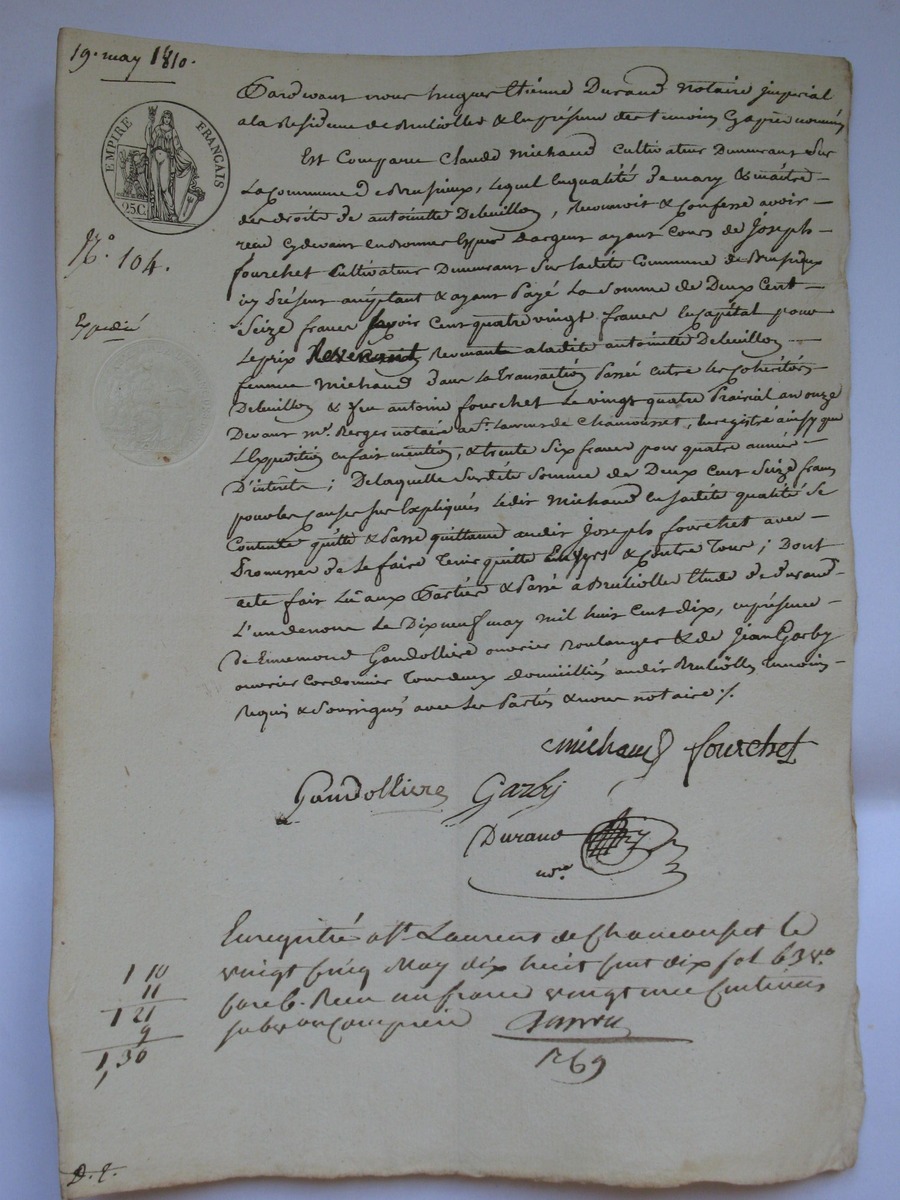 19. may 1810.
EMPIRE FRANÇAIS
25C
N.° 104.
Expedié
Pardevant nous hugues Etienne Durand notaire Imperial
a la Residence de Brulioles & en présence des temoins Cy après nommés
Est Comparu Claude Michaud Cultivateur Demeurant Sur
La Commune de Brusieux, lequel En qualité de mary & maitre
des droits de antoinette Deleuillon, Reconnoit & Confesse avoir
reçu cy devant en bonnes Especes d'argent ayant Cours de Joseph
fourchet Cultivateur Demeurant Sur ladite Commune de Brusieux
icy Présent aceptant & ayant Payé La Somme de Deux Cent
Seize francs Savoir Cent quatre vingt francs le Capital pour
Le prix Revenant à ladite antoinette Deleuillon
femme Michaud dans la transaction Passée entre les Cohéritiers
Deleuillon & feu antoine fourchet Le vingt quatre Prairial an onze
Devant m.e Berger notaire a St. Laurent de Chamousset, Enregistré ainsy que
L'Expedition en fait mention, & trente Six francs pour quatre années
D'interets; De laquelle Surdite Somme de Deux Cent Seize francs
pour les Causes Sus Expliquées ledit Michaud en sadite qualité Se
Contente quitte & Passe quittance audit Joseph fourchet avec
Promesse de le faire tenir quitte Envers & Contre Tous; Dont
acte fait Lu aux Parties & Passé a Brulliolle Etude de Durand
L'un de nous Le Dix neuf may Mil huit Cent dix, en présence
De Ennemond Gandolliere ouvrier Boulanger & de Jean Garby
ouvrier Cordonnier Tous deux domiciliés audit Brulliolle temoins
Requis & Soussignés avec les Parties & nous notaire ./.
Michaud fourchet
Gandolliere Garby
Durand
no.re
Enregistré a St. Laurent de Chamousset le
vingt cinq May dix huit cent dix fol. 63 v.o
Case 6. Reçu un franc vingt une Centimes
subvon Comprise
1 10
11
1 21
9
1,30
1269
D. E.